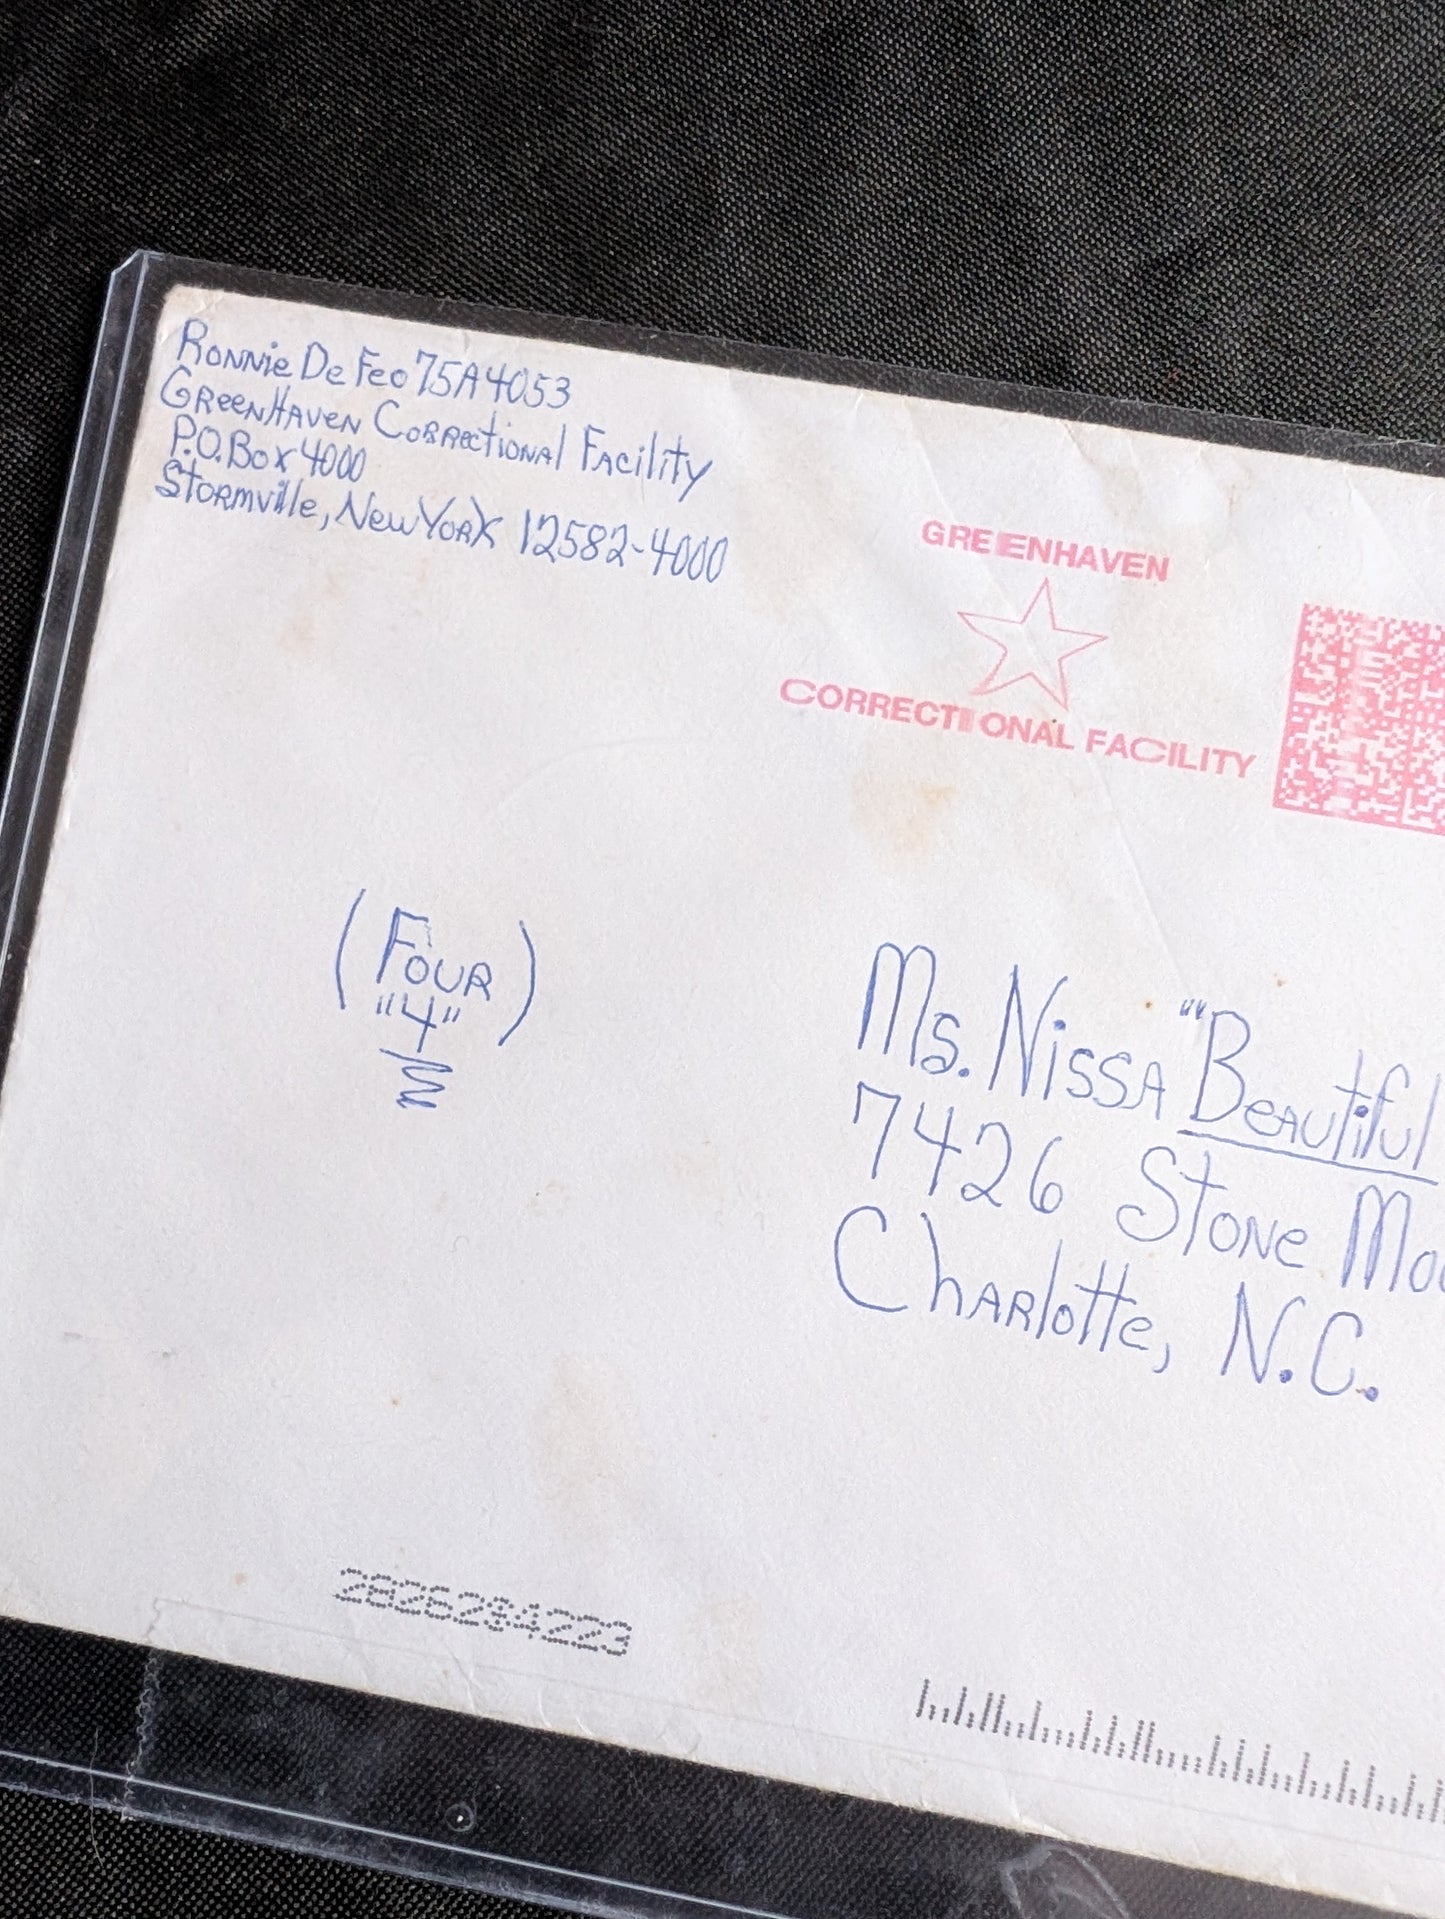 Ronnie De Feo 75A4053
GreenHaven Correctional Facility
P.O. Box 4000
Stormville, New York 12582-4000
GREENHAVEN
CORRECTIONAL FACILITY
(Four
"4")
Ms. Nissa "'Beautiful
7426 Stone
Charlotte, N.C.
2826284223